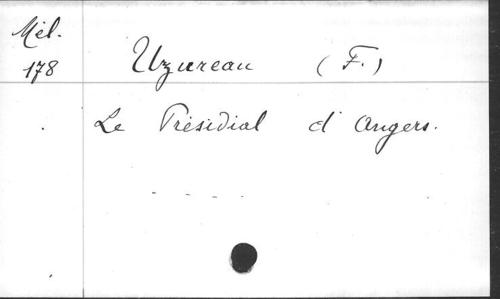 Mél.
178
Uzureau (F.)
Le Présidial d'Angers.